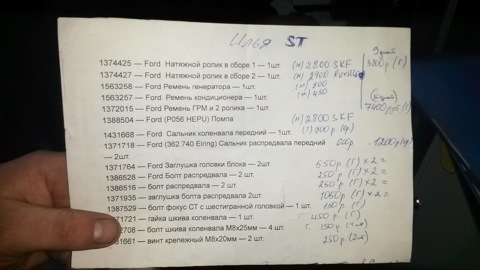 Илья ST
1374425 — Ford Натяжной ролик в сборе 1 — 1шт. (м) 2800 SKF
1374427 — Ford Натяжной ролик в сборе 2 - 1шт. (м) 2900
1563258 — Ford Ремень генератора — 1шт. (м) 800
1563257 — Ford Ремень кондиционера — 1шт. (м) 450
1372015 — Ford Ремень ГРМ и 2 ролика - 1шт.
1388504 — Ford (P056 HEPU) Помпа (м) 2800 SKF
9 дней
3200 р (Г)
7400 руб (Г)
1431668 — Ford Сальник коленвала передний — 1шт. (Г)
1371718 — Ford (362.740 Elring) Сальник распредвала передний 1200р
— 2шт.
1371764 — Ford Заглушка головки блока — 2шт. 550 р (Г) x 2 =
1386528 — Ford Болт распредвала — 2 шт. 250 р (Г) x 2 =
1386516 — болт распредвала — 2 шт. 250 р (Г) x 2 =
1371935 — заглушка болта распредвала 2шт. 1050 р (Г) x 2 =
1387529 — болт фокус СТ с шестигранной головкой — 1 шт. (Г)
1721 — гайка шкива коленвала — 1 шт. 450 р (Г)
2708 — болт шкива коленвала M8x25мм — 4 шт. 150 р
1661 — винт крепежный M8x20мм — 2 шт. 250 р